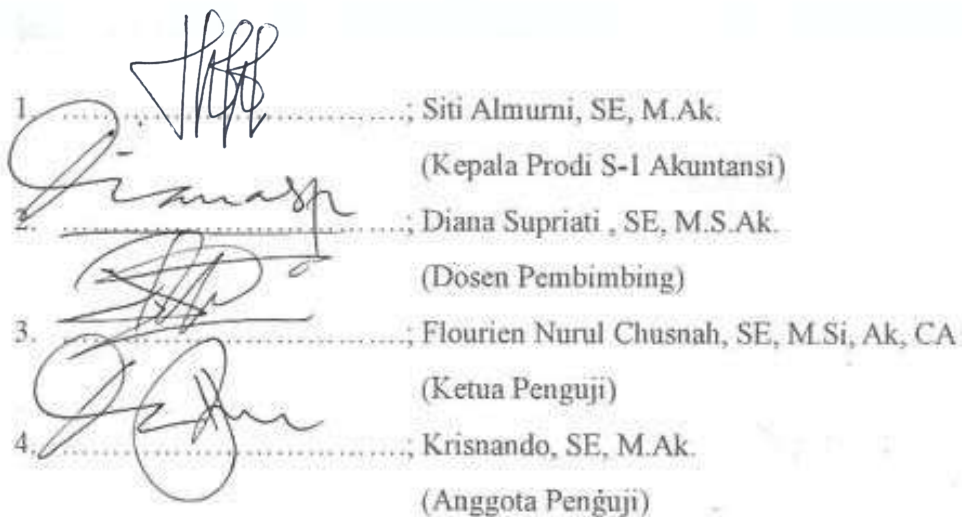 1. ..............................; Siti Almurni, SE, M.Ak.
(Kepala Prodi S-1 Akuntansi)
2. ..............................; Diana Supriati , SE, M.S.Ak.
(Dosen Pembimbing)
3. ..............................; Flourien Nurul Chusnah, SE, M.Si, Ak, CA
(Ketua Penguji)
4. ..............................; Krisnando, SE, M.Ak.
(Anggota Penguji)